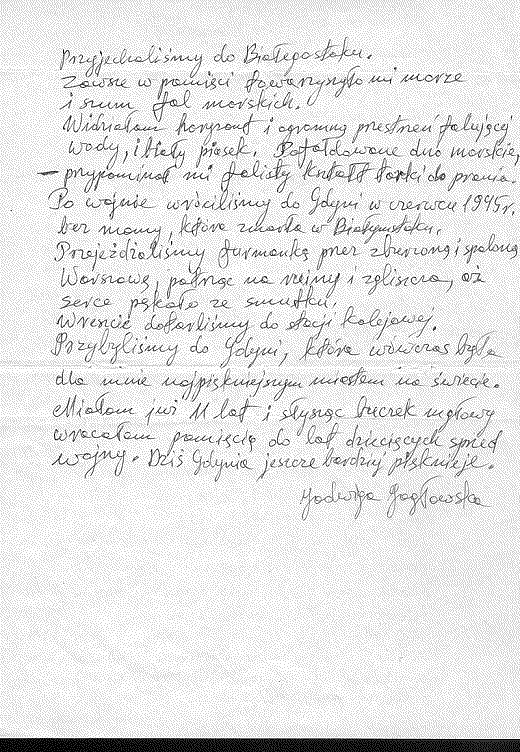 Przyjechaliśmy do Białegostoku.
Zawsze w pamięci towarzyszyło mi morze
i szum fal morskich.
Widziałam horyzont i ogromną przestrzeń falującej
wody, i biały piasek. Pofałdowane dno morskie,
– przypominał mi falisty kształt tarki do prania.
Po wojnie wróciliśmy do Gdyni w czerwcu 1945r.
bez mamy, która zmarła w Białymstoku.
Przejeżdżaliśmy furmanką przez zburzoną i spaloną
Warszawę, patrząc na ruiny i zgliszcza, aż
serce pękało ze smutku.
Wreszcie dotarliśmy do stacji kolejowej.
Przybyliśmy do Gdyni, która wówczas była
dla mnie najpiękniejszym miastem na świecie.
Miałam już 11 lat i słysząc buczek mgłowy
wracałam pamięcią do lat dziecięcych sprzed
wojny. Dziś Gdynia jeszcze bardziej pięknieje.
Jadwiga